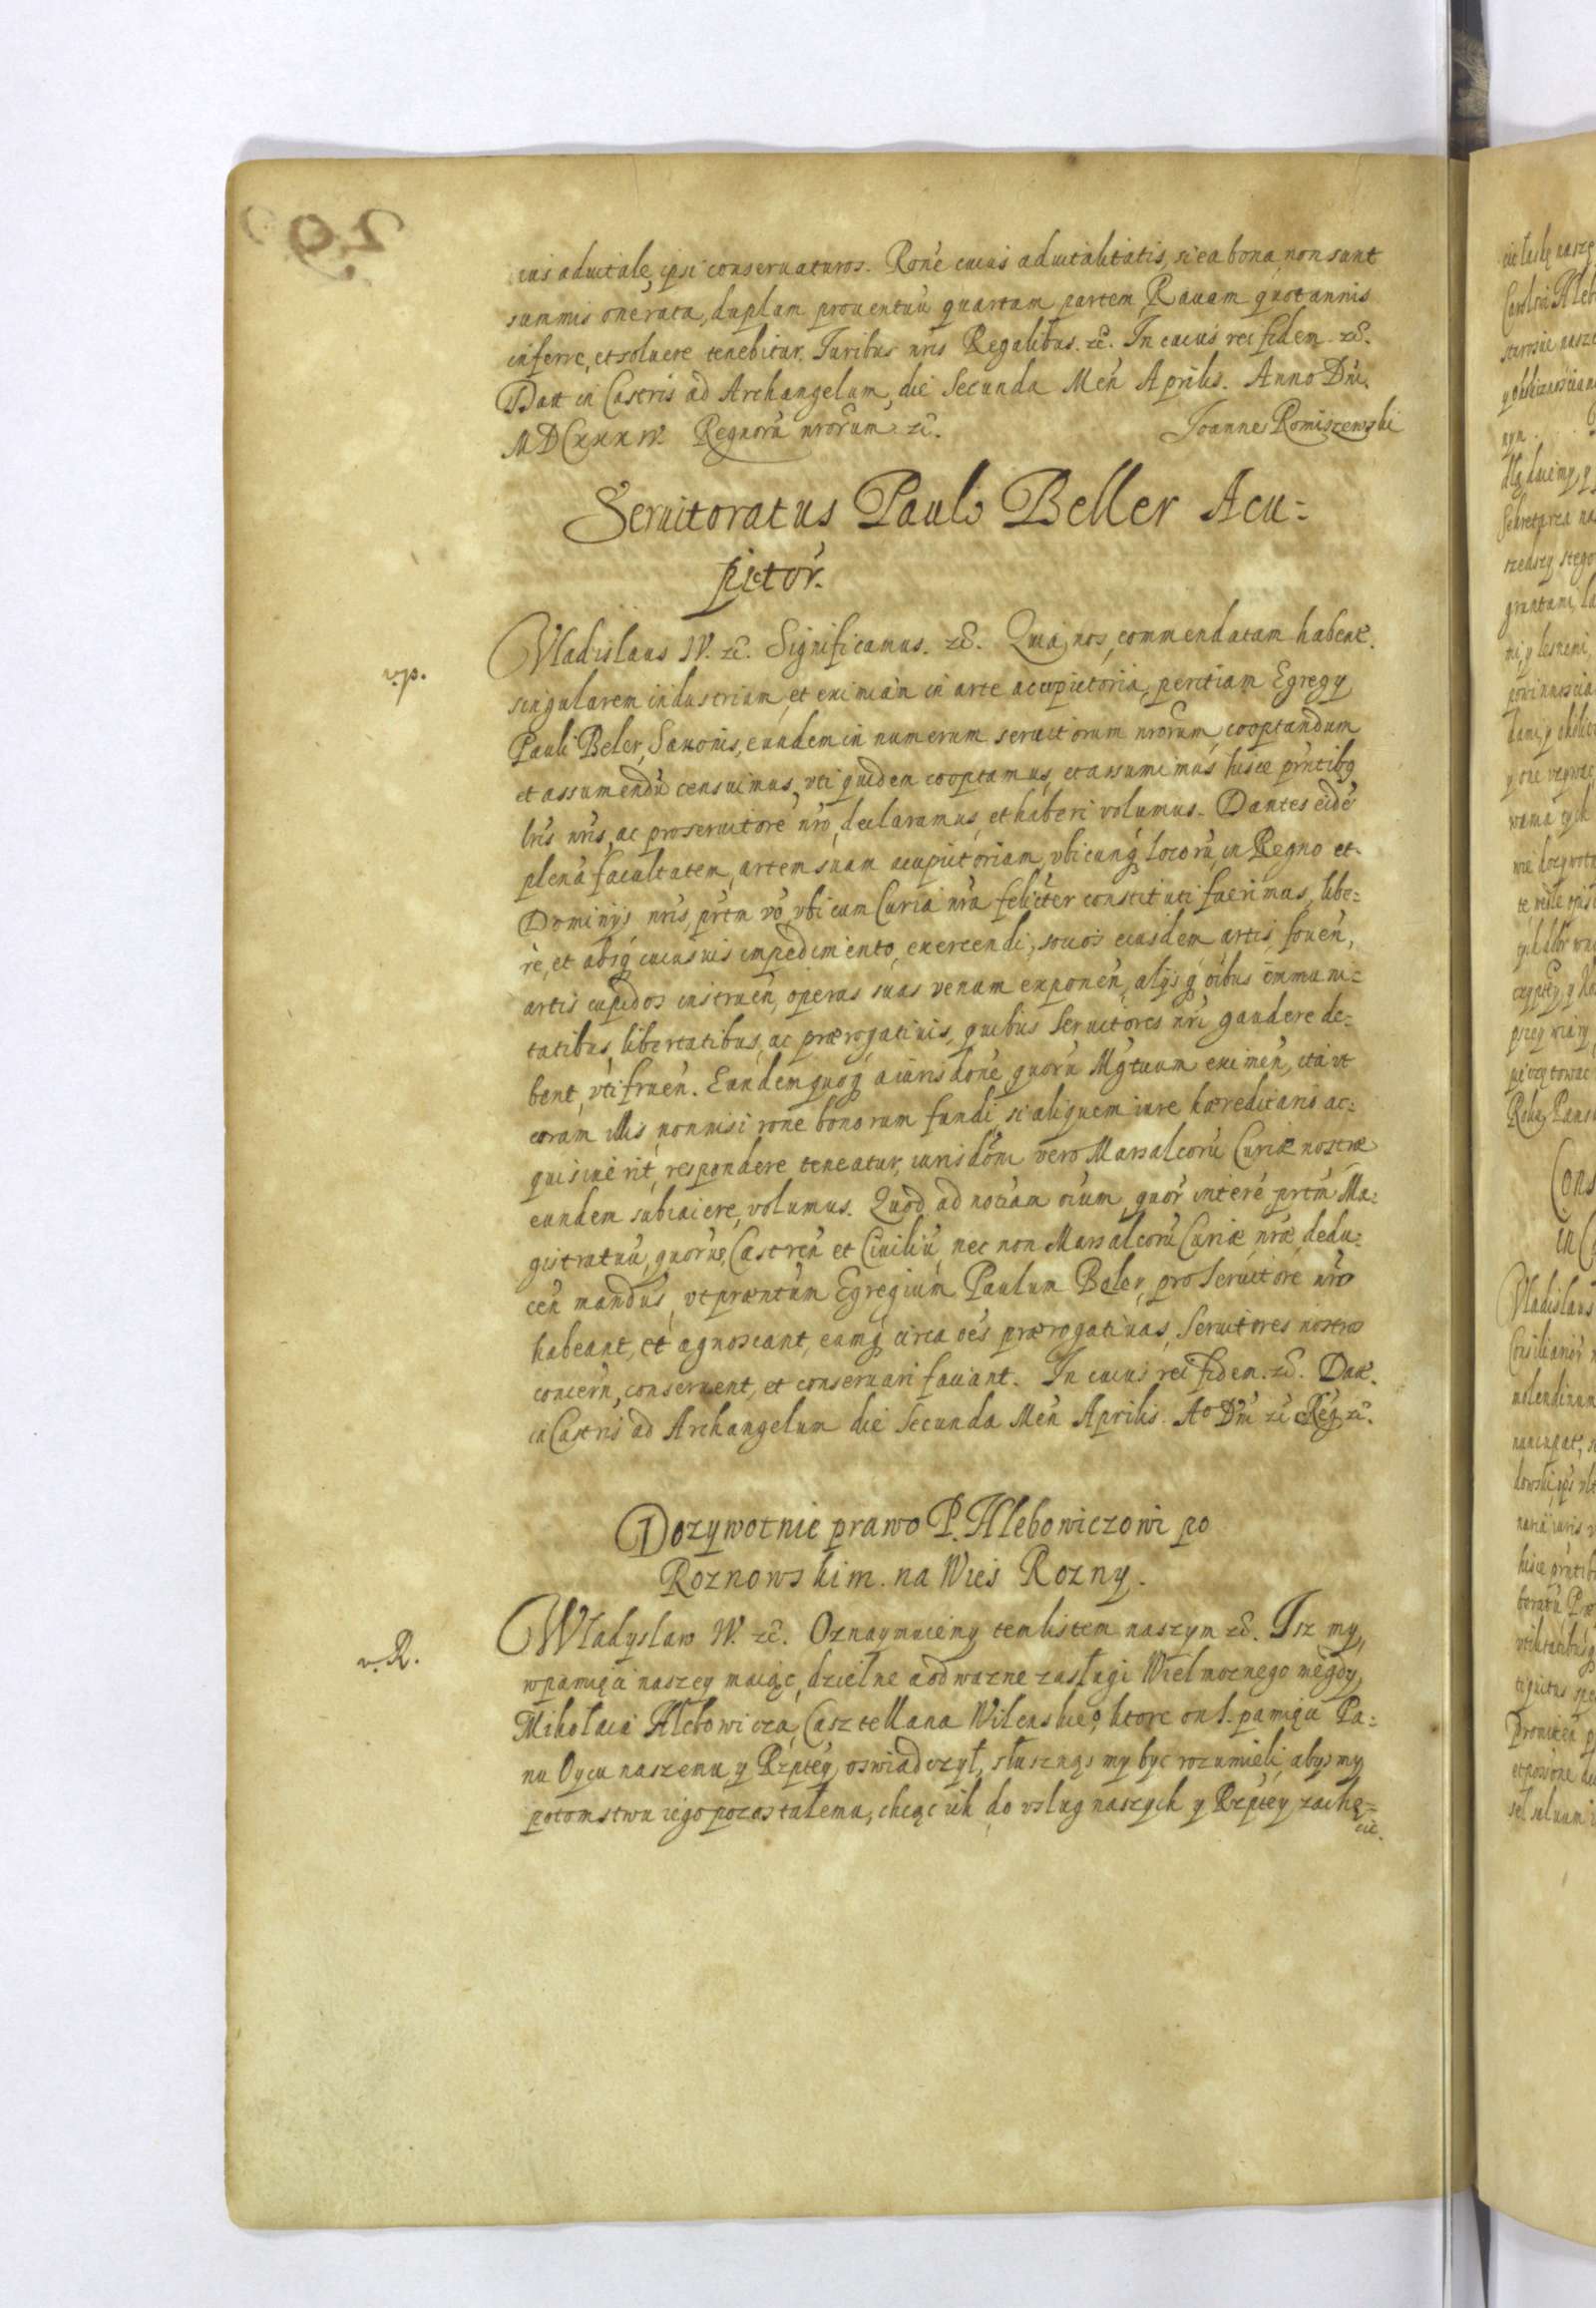 ius aduitale, ipsi conseruaturos. Rone cuius aduitalitatis, si ea bona non sunt
summis onerata, duplam prouentuũ quartam partem Rauam quotannis
inferre, et soluere tenebitur. Iuribus nris Regalibus. zc̃. In cuius rei fidem. zc̃.
Datt in Castris ad Archangelum, die Secunda Meñ Aprilis. Anno Dni.
MDCxxxiv. Regnorũ nrorum zc̃. Joannes Romiszewski
Seruitoratus Paulo Beller Acu-
pictor.
v.p.
Vladislaus IV. zc̃. Significamus. zc̃. Quia nos, commendatam habent.
singularem industriam, et eximiam in arte acupictoria, peritiam Egregy
Pauli Beler, Saxonis, eundem in numerum seruitorum nrorum, cooptandum
et assumendũ censuimus, vti quidem cooptamus, et assumimus hisce prntibq
lris nris, ac pro seruitore nro, declaramus, et haberi volumus. Dantes eidẽ
plenã facultatem, artem suam acupictoriam, vbicunq locorũ, in Regno et
Dominijs nris, prtm vo, vbi cum Curia nra feliciter constituti fuerimus, libe-
rè, et absq cuiusuis impedimento, exercendi, socios eiusdem artis fouen̄,
artis cupidos instruen̄, operas suas venum exponen̄, alijsq oibus immuni-
tatibus, libertatibus, ac prærogatiuis, quibus Seruitores nri gaudere de-
bent, vti fruen̄. Eundem quoq a iurisdone quorũ Mgtuum eximen̄, ita vt
coram illis nonnisi rone bonorum fundi, si aliquem iure hæreditario ac-
quisiuerit, respondere teneatur, iurisdoni vero Marsalcorũ Curiæ nostræ
eundem subiacere, volumus. Quod ad notiam oium, quor̃ interẽ prtm Ma-
gistratuũ, quorus, Castren̄ et Ciuiliũ, nec non Marsalcorũ Curiæ nræ, dedu-
cen̄ mandus, vt præntum Egregium Paulum Beler, pro Seruitore nro
habeant, et agnoscant, eumq circa oẽs prærogatiuas, Seruitores nostros
concern̄, conseruent, et conseruari faciant. In cuius rei fidem. zc̃. Datt.
in Castris ad Archangelum die Secunda Men̄ Aprilis. Ao Dni zc̃ Reg zc̃.
Dozywotnie prawo P. Hlebowiczowi po
Roznowskim. na Wieś Rozny.
v.R.
Wladyslaw IV. zc̃. Oznaymuiemy tem listem naszym zc̃. Isz my,
w pamięći naszey maiąc, dzielne a odwazne zasługi Wielmoznego niegdy
Mikołaia Hlebowicza, Casztellana Wilenskieo, ktore on S. pamięći Pa-
nu Oycu naszemu, y Rzptey, oswiadczył, słusznąs my byc rozumieli, abysmy
potomstwu iego pozostałemu, chcąc ich do vslug naszych y Rzptey zachę-
cic.